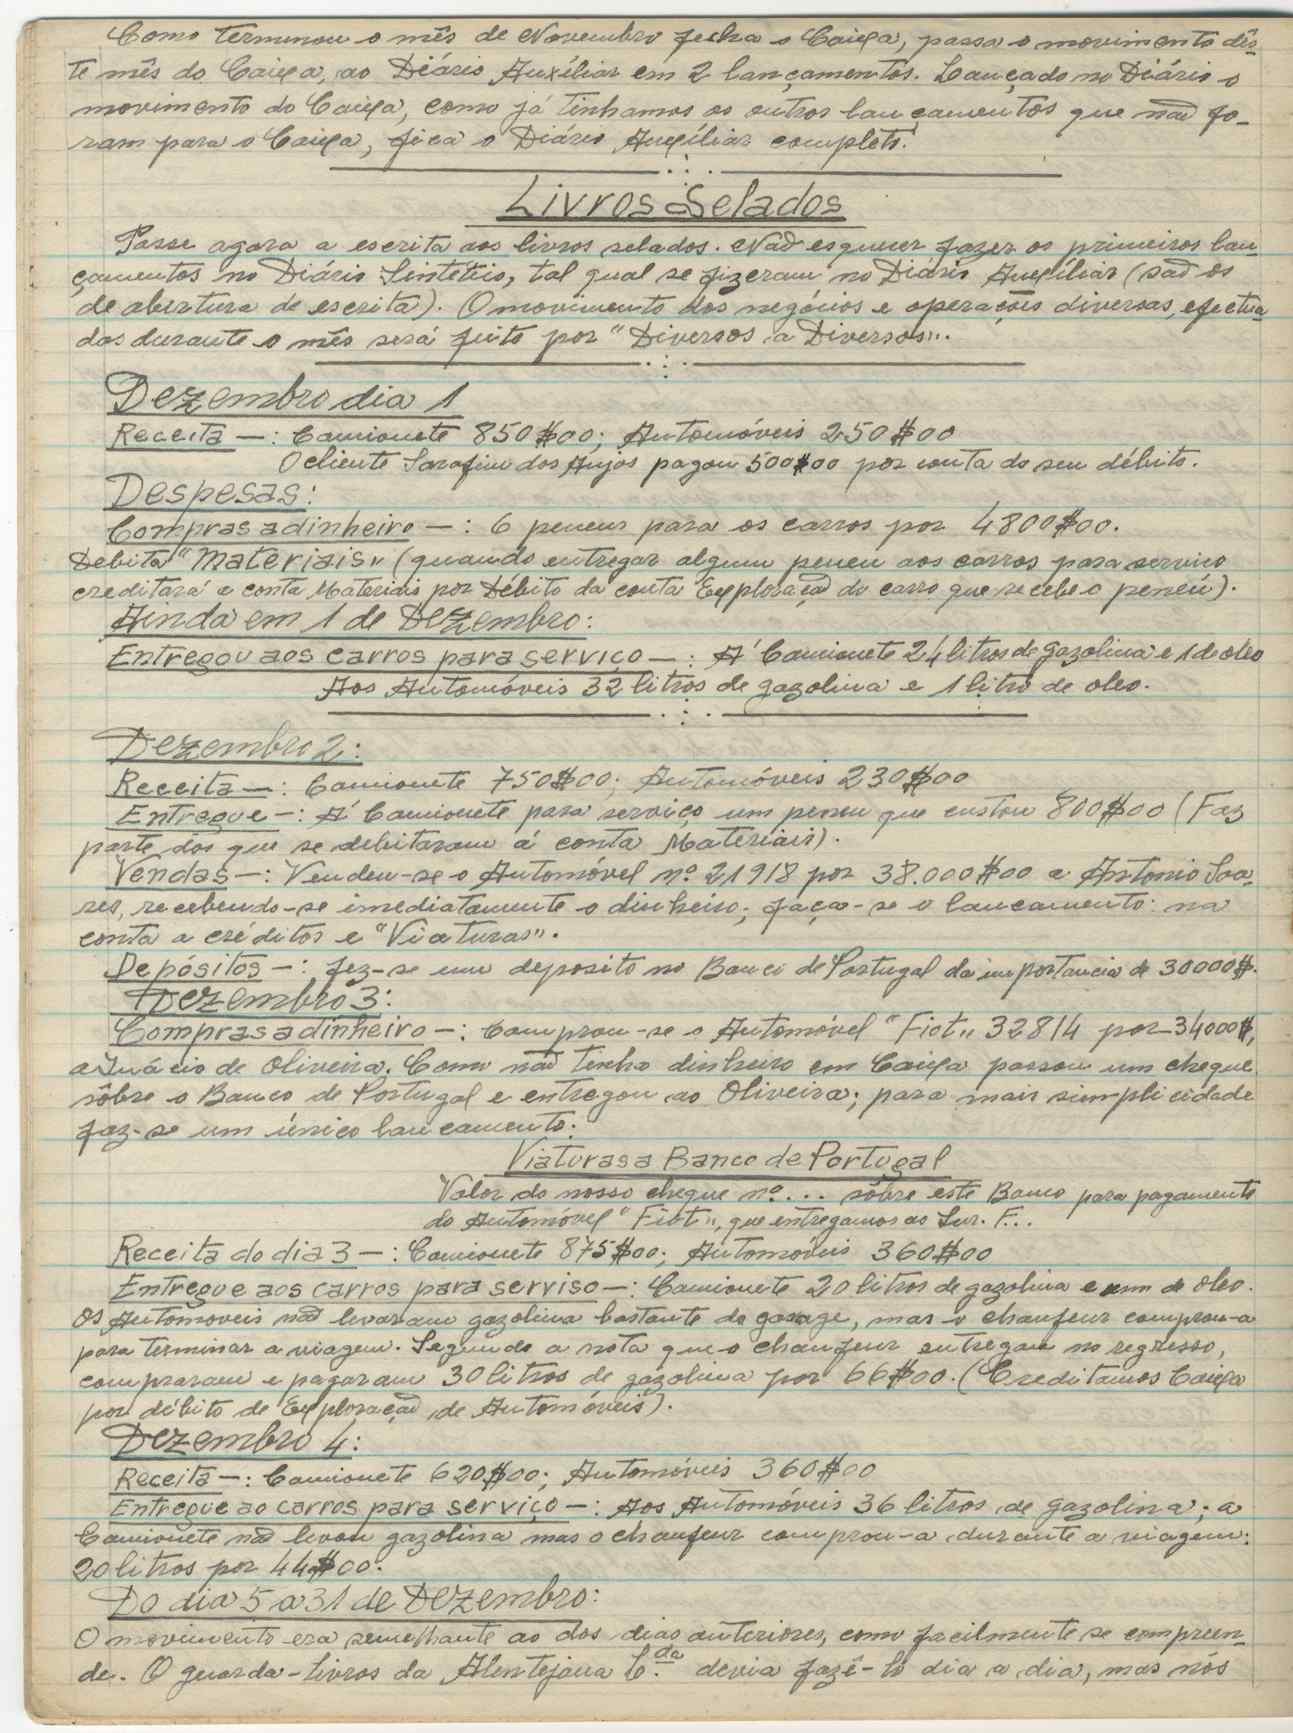 Como terminou o mês de Novembro fecha o Caixa, passa o movimento dês-
te mês do Caixa, ao Diário Auxíliar em 2 lançamentos. Lançado no Diário o
movimento do Caixa, como já tinhamos os outros lançamentos que não fo-
ram para o Caixa, fica o Diário Auxíliar completo.
Livros Selados
Passe agora a escrita aos livros selados. Não esquecer fazer os primeiros lan-
çamentos no Diário Sintético, tal qual se fizeram no Diário Auxíliar (são os
de abertura de escrita). O movimento dos negócios e operações diversas, efectua-
das durante o mês será feito por "Diversos a Diversos".
Dezembro dia 1
Receita —: Camionete 850$00; Automóveis 250$00
O cliente Serafim dos Anjos pagou 500$00 por conta do seu débito.
Despesas:
Compras a dinheiro —: 6 peneus para os carros por 4800$00.
Debita "Materiais" (quando entregar algum peneu aos carros para serviço
creditará a conta Materiais por Débito da conta Exploração do carro que recebe o peneu).
Ainda em 1 de Dezembro:
Entregou aos carros para serviço —: Á Camionete 24 litros de gazolina e 1 de oleo
Aos Automóveis 32 litros de gazolina e 1 litro de oleo.
Dezembro 2:
Receita —: Camionete 750$00; Automóveis 230$00
Entregue —: Á Camionete para serviço um peneu que custou 800$00 (Faz
parte dos que se debitaram á conta Materiais).
Vendas —: Vendeu-se o Automóvel nº 21918 por 38.000$00 a Antonio Soa-
res, recebendo-se imediatamente o dinheiro; faça-se o lancamento: na
conta a créditos e "Viaturas".
Depósitos —: fez-se um deposito no Banco de Portugal da importancia de 30000$.
Dezembro 3:
Compras a dinheiro —: Comprou-se o Automóvel "Fiot" 32814 por 34000$,
a Inácio de Oliveira. Como não tinha dinheiro em Caixa passou um cheque
sôbre o Banco de Portugal e entregou ao Oliveira; para mais simplicidade
faz-se um único lancamento:
Viaturas a Banco de Portugal
Valor do nosso cheque nº ... sôbre este Banco para pagamento
do Automóvel "Fiot", que entregamos ao Snr. F...
Receita do dia 3 —: Camionete 875$00; Automóveis 360$00
Entregue aos carros para serviso —: Camionete 20 litros de gazolina e um de oleo.
Os Automoveis não levaram gazolina bastante da garage, mas o chaufeur comprou-a
para terminar a viagem. Segundo a nota que o chaufeur entregou no regresso,
compraram e pagaram 30 litros de gazolina por 66$00. (Creditamos Caixa
por débito de Exploração de Automóveis).
Dezembro 4:
Receita —: Camionete 620$00; Automóveis 360$00
Entregue ao carros para serviço —: Aos Automóveis 36 litros de gazolina; a
Camionete não levou gazolina mas o chaufeur comprou-a durante a viagem:
20 litros por 44$00.
Do dia 5 a 31 de Dezembro:
O movimento era semelhante ao dos dias anteriores, como facilmente se compreen-
de. O guarda-livros da Alentejana Cda. devia fazê-lo dia a dia, mas nós